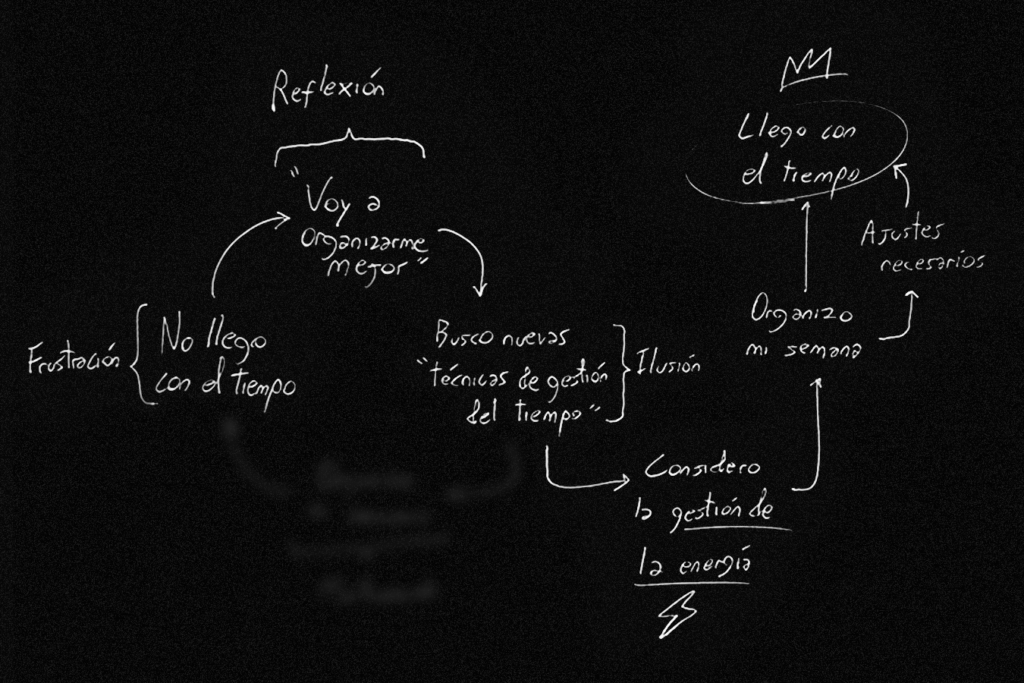 Reflexión
"Voy a
organizarme
mejor"
Frustración
No llego
con el tiempo
Busco nuevas
"técnicas de gestión
del tiempo"
Ilusión
Considero
la gestión de
la energía
Organizo
mi semana
Ajustes
necesarios
Llego con
el tiempo